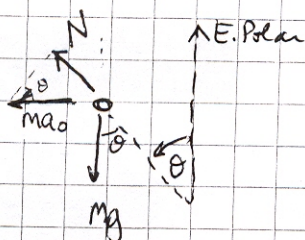 N
E. Polar
θ
ma₀
θ
θ
Mg